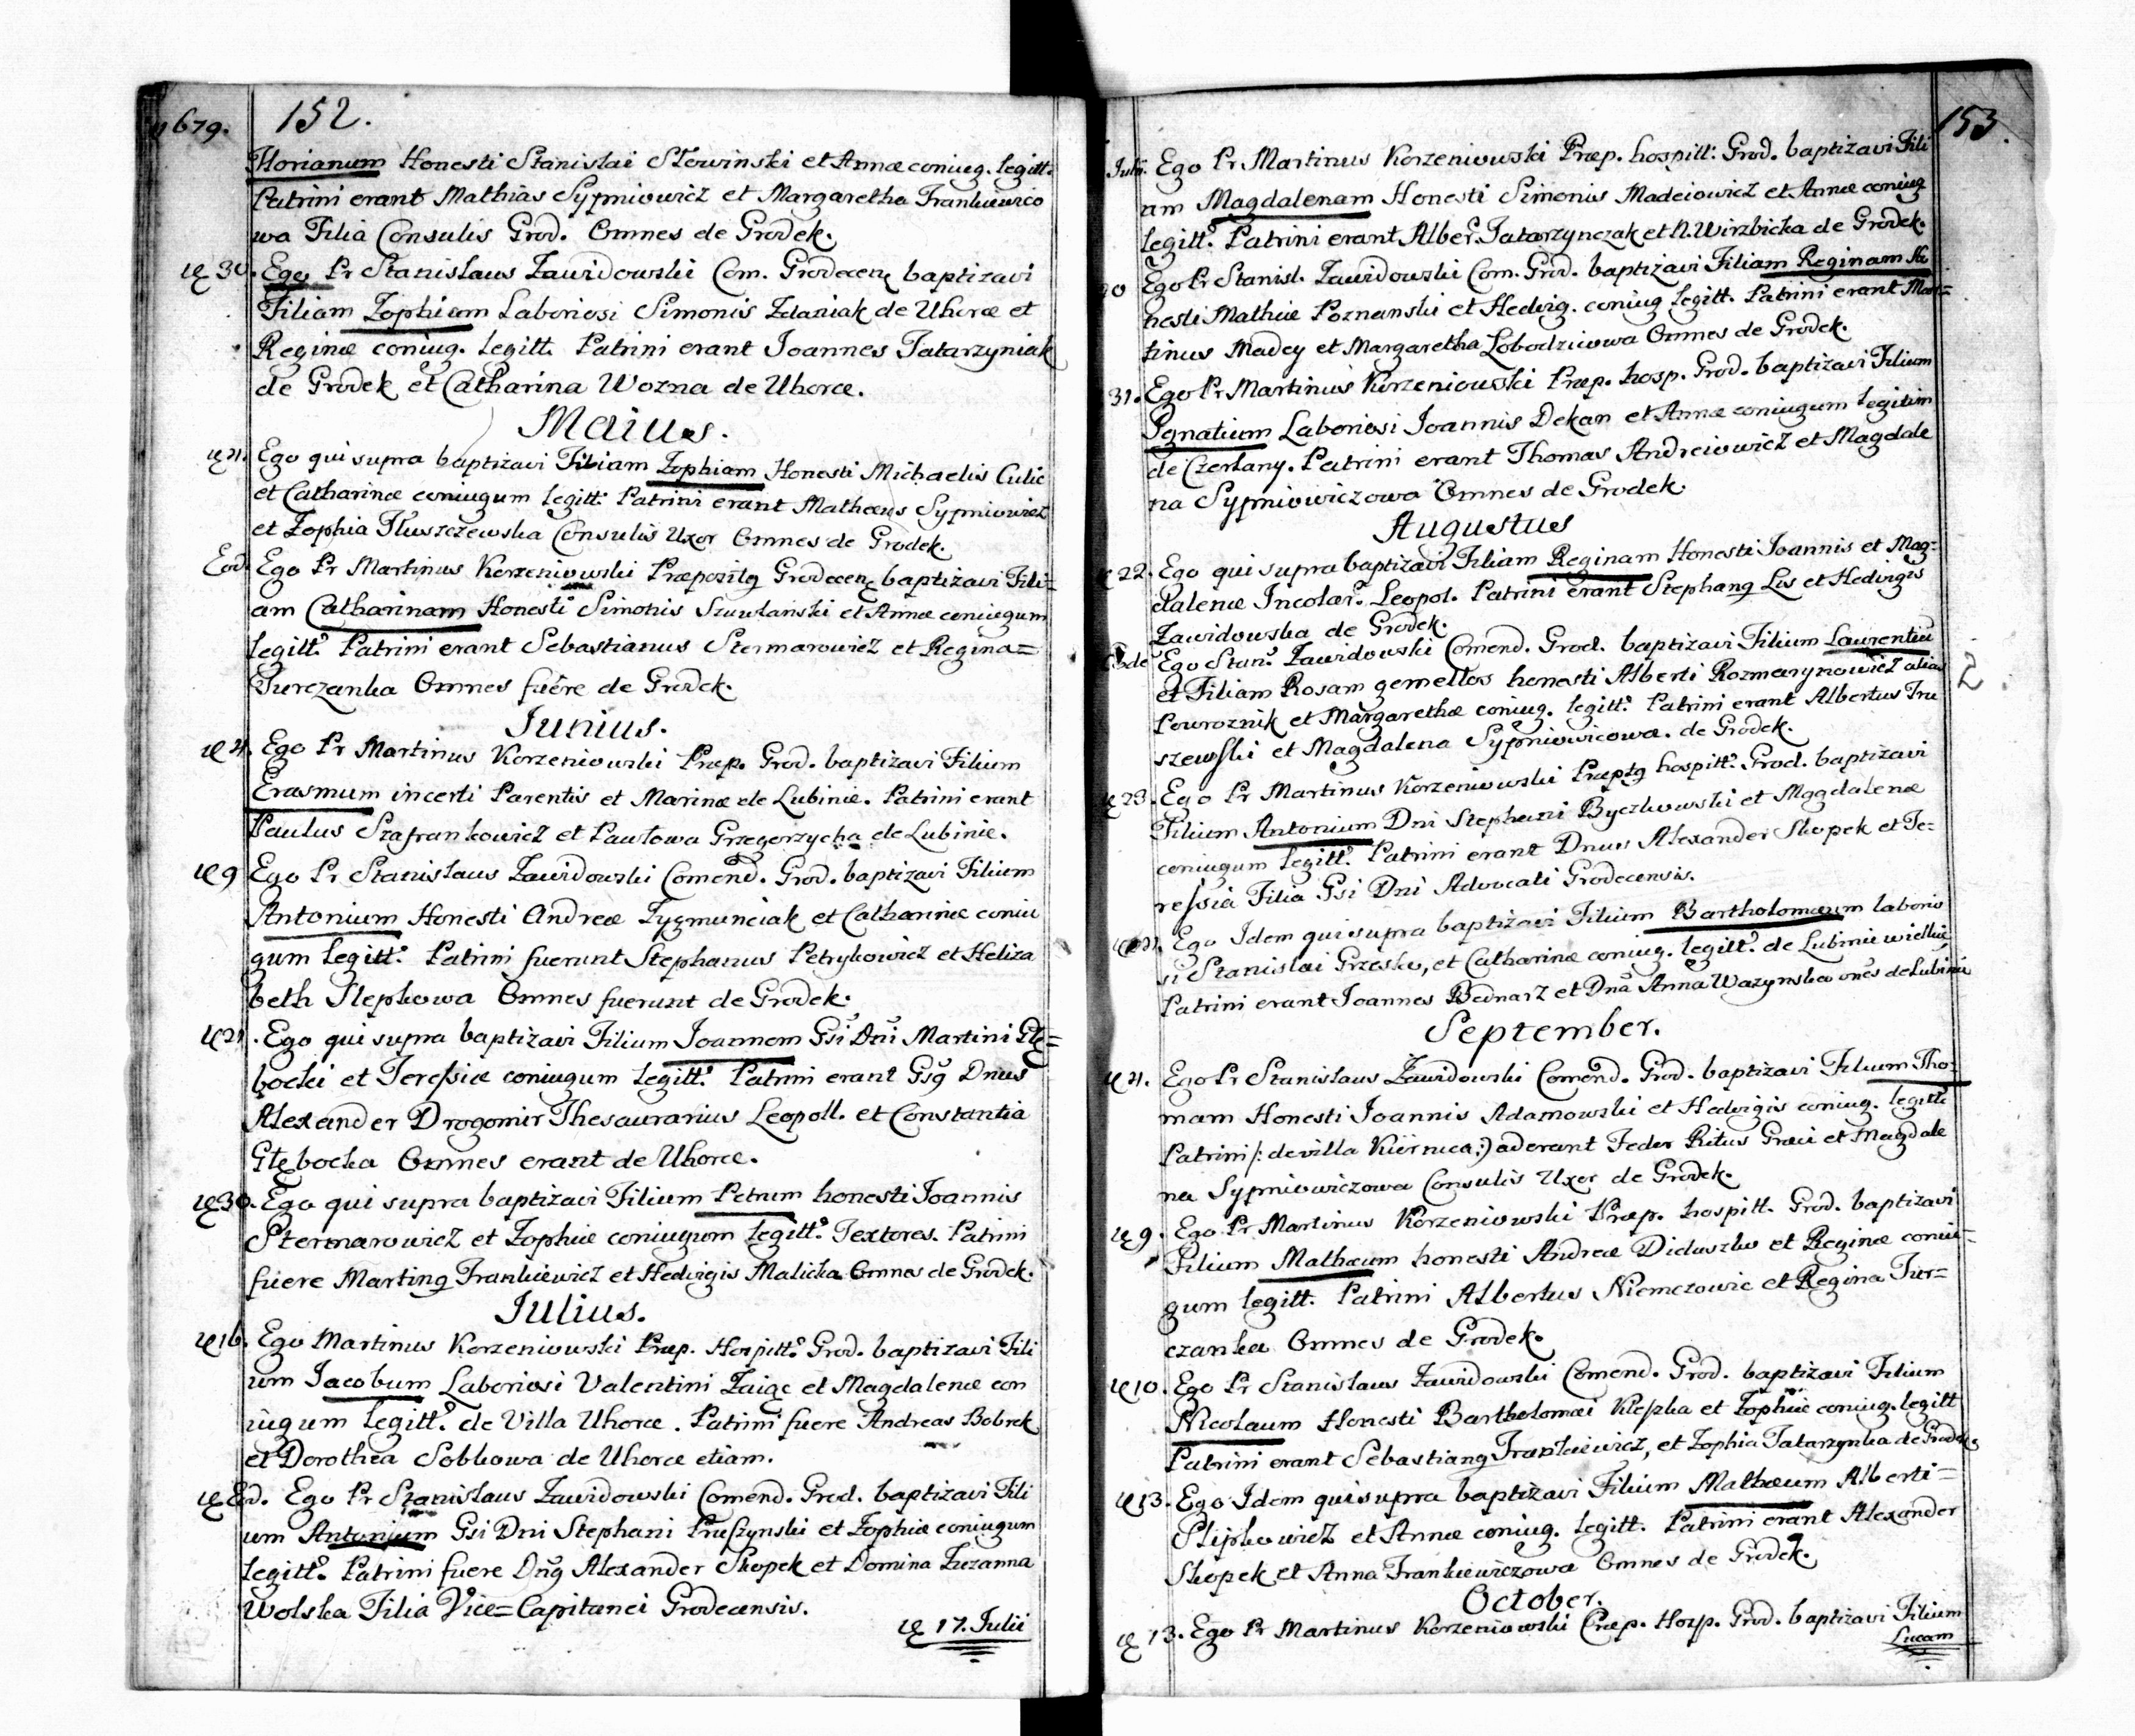 1679. 152.
Florianum Honesti Stanislai Słowinski et Annæ coniug. legitt.
Patrini erant Mathias Sypniowicz et Margaretha Frankiewico
wa Filia Consulis Grod. Omnes de Grodek.
30. Ego Pr Stanislaus Zawidowski Com. Grodecen baptizavi
Filiam Zophiam Laboriosi Simonis Zdaniak de Uhorce et
Reginæ coniug. legitt. Patrini erant Joannes Tatarzyniak
de Grodek et Catharina Wozna de Uhorce.
Maius.
21. Ego qui supra baptizavi Filiam Zophiam Honesti Michaelis Culic
et Catharinæ coniugum legitt. Patrini erant Mathæus Sypniowicz
et Zophia Tłuszczewska Consulis Uxor Omnes de Grodek.
Eod. Ego Pr Martinus Korzeniowski Præpositg Grodecen baptizavi Fili=
am Catharinam Honesti Simonis Szuwlanski et Annæ coniugum
legitt. Patrini erant Sebastianus Stermarowicz et Regina=
Turczanka Omnes fuêre de Grodek.
Junius.
4. Ego Pr Martinus Korzeniowski Præp. Grod. baptizavi Filium
Erasmum incerti Parentis et Marinæ de Lubinie. Patrini erant
Paulus Szafrankowicz et Pawłowa Grzegorzycha de Lubinie.
9 Ego Pr Stanislaus Zawidowski Comend. Grod. baptizavi Filium
Antonium Honesti Andreæ Zygmunciak et Catharinæ coniu
gum legitt. Patrini fuerunt Stephanus Petrykowicz et Heliza
beth Slepkowa Omnes fuerunt de Grodek.
21. Ego qui supra baptizavi Filium Joannem Gsi Dni Martini Głę=
bocki et Teressiæ coniugum legitt. Patrini erant Gsg Dnus
Alexander Drogomir Thesaurarius Leopoll. et Constantia
Głębocka Omnes erant de Uhorce.
30. Ego qui supra baptizavi Filium Petrum honesti Joannis
Stermarowicz et Zophiæ coniugum legitt. Textores. Patrini
fuere Marting Frankiewicz et Hedvigis Malicka Omnes de Grodek.
Julius.
16. Ego Martinus Korzeniowski Præp. Hospitt. Grod. baptizavi Fili
um Jacobum Laboriosi Valentini Zaigc et Magdalenæ con
iugum legitt. de Villa Uhorce. Patrini fuere Andreas Bobrek
et Dorothea Sobkowa de Uhorce etiam.
Eod. Ego Pr Stanislaus Zawidowski Comend. Grod. baptizavi Fili
um Antonium Gsi Dni Stephani Pruszynski et Zophiæ coniugum
legitt. Patrini fuere Dng Alexander Skopek et Domina Zuzanna
Wolska Filia Vice=Capitanei Grodecensis.
17. Julii
153.
Julii. Ego Pr Martinus Korzeniowski Præp. hospitt. Grod. baptizavi Fili
am Magdalenam Honesti Simonis Madeiowicz et Annæ coniug
legitt. Patrini erant Alber. Tatarzynczak et N. Wirzbicka de Grodek.
Ego Pr Stanisl. Zawidowski Com. Grod. baptizavi Filiam Reginam Ho
nesti Mathiæ Poznanski et Hedvig. coniug legitt. Patrini erant Mar=
tinus Madey et Margaretha Lobodziowa Omnes de Grodek.
31. Ego Pr Martinus Korzeniowski Præp. hosp. Grod. baptizavi Filium
Ignatium Laboriosi Joannis Dekan et Annæ coniugum legitim
de Czerlany. Patrini erant Thomas Andreiowicz et Magdale
na Sypniowiczowa Omnes de Grodek.
Augustus
22. Ego qui supra baptizavi Filiam Reginam Honesti Joannis et Mag=
dalenæ Incolar. Leopol. Patrini erant Stephang Lis et Hedvigis
Zawidowska de Grodek.
Eode Ego Stan. Zawidowski Comend. Grod. baptizavi Filium Laurentiu
et Filiam Rosam gemellos honesti Alberti Rozmarynowicz alias
Powroznik et Margarethæ coniug. legitt. Patrini erant Albertus Tru
szewski et Magdalena Sypniowicowa. de Grodek.
2.
23. Ego Pr Martinus Korzeniowski Præptg hospitt. Grod. baptizavi
Filium Antonium Dni Stephani Byczkowski et Magdalenæ
coniugum legitt. Patrini erant Dnus Alexander Skopek et Te=
ressia Filia Gsi Dni Advocati Grodecensis.
Ego Idem qui supra baptizavi Filium Bartholomæum laborio
si Stanislai Grzesko, et Catharinæ coniug. legitt. de Lubinie wielkie
Patrini erant Joannes Bednarz et Dna Anna Wazynska ones de Lubinie
September.
4. Ego Pr Stanislaus Zawidowski Comend. Grod. baptizavi Filium Tho=
mam Honesti Joannis Adamowski et Hedvigis coniug. legitt
Patrini /: de villa Kiernica :/ aderant Feder Ritus Græci et Magdale
na Sypniowiczowa Consulis Uxor de Grodek.
9. Ego Pr Martinus Korzeniowski Præp. hospitt. Grod. baptizavi
Filium Mathæum honesti Andreæ Diduszko et Reginæ coniu=
gum legitt. Patrini Albertus Niemczowic et Regina Tur=
czanka Omnes de Grodek.
10. Ego Pr Stanislaus Zawidowski Comend. Grod. baptizavi Filium
Nicolaum Honesti Bartholomæi Klepka et Zophiæ coniug. legitt
Patrini erant Sebastiang Frankiewicz, et Zophia Tatarzynka de Grodek.
13. Ego Idem qui supra baptizavi Filium Mathæum Alberti=
Slipkowicz et Annæ coniug. legitt. Patrini erant Alexander
Skopek et Anna Frankiewiczowa Omnes de Grodek.
October.
13. Ego Pr Martinus Korzeniowski Præp. Hosp. Grod. baptizavi Filium
Lucam